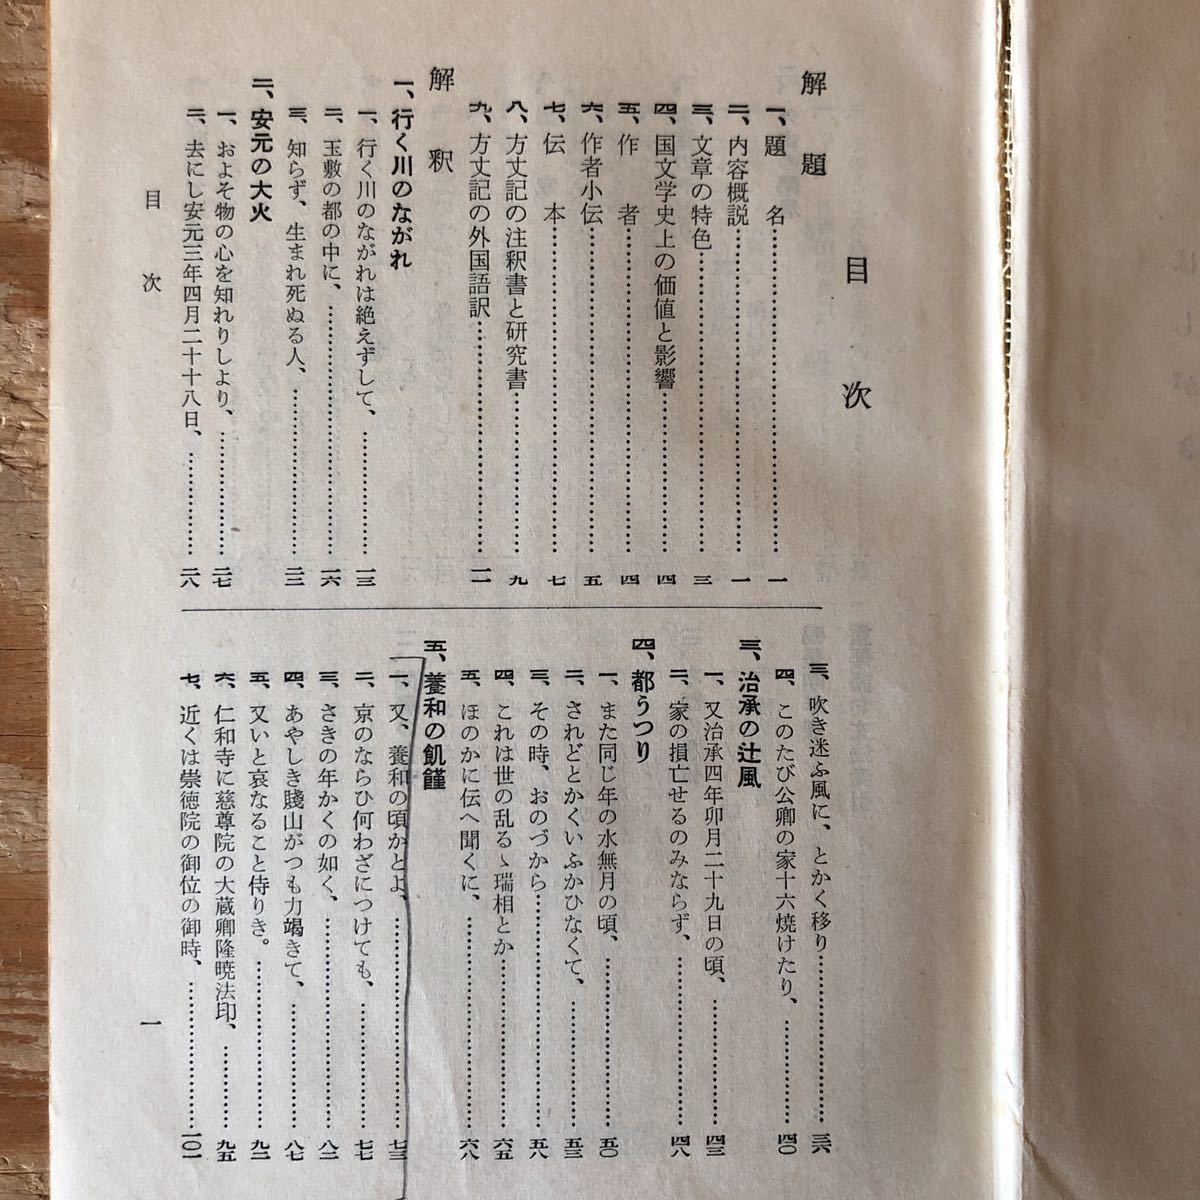 目次
解題
一、題名……一
二、内容概説……一
三、文章の特色……三
四、国文学史上の価値と影響……四
五、作者……四
六、作者小伝……五
七、伝本……七
八、方丈記の注釈書と研究書……九
九、方丈記の外国語訳……一一
解釈
一、行く川のながれ
一、行く川のながれは絶えずして、……一三
二、玉敷の都の中に、……一六
三、知らず、生まれ死ぬる人、……二二
二、安元の大火
一、およそ物の心を知れりしより、……二七
二、去にし安元三年四月二十八日、……二八
三、吹き迷ふ風に、とかく移り……三六
四、このたび公卿の家十六焼けたり、……四〇
三、治承の辻風
一、又治承四年卯月二十九日の頃、……四三
二、家の損亡せるのみならず、……四八
四、都うつり
一、また同じ年の水無月の頃、……五〇
二、されどとかくいふかひなくて、……五三
三、その時、おのづから……五八
四、これは世の乱るゝ瑞相とか……六五
五、ほのかに伝へ聞くに、……六八
五、養和の飢饉
一、又、養和の頃かとよ、……七三
二、京のならひ何わざにつけても、……七七
三、さきの年かくの如く、……八二
四、あやしき賤山がつも力竭きて、……八七
五、又いと哀なること侍りき。……九二
六、仁和寺に慈尊院の大蔵卿隆暁法印、……九五
七、近くは崇徳院の御位の御時、……一〇一
目次
一